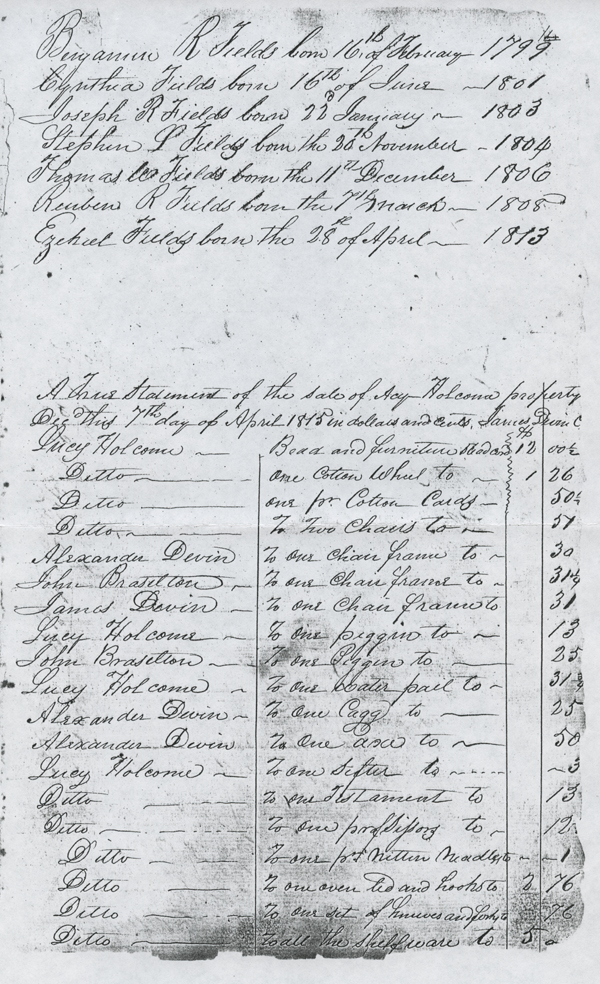 Benjamin R Fields born 16th of February 1799
Cynthia Fields born 16th of June - 1801
Joseph R Fields born 22d January ~ 1803
Stephen L Fields born the 20th November - 1804
Thomas W Fields born the 11th December 1806
Reuben R Fields born the 7th march - 1808
Ezekiel Fields born the 28th of April - 1813
A True Statement of the sale of Acy Holcome property
Dec'd this 7th day of April 1815 in dollars and cents, James Devin
Lucy Holcome - Bead and furniture 12 00½
Ditto - one Cotton Wheel to - 1 26
Ditto - one pr Cotton Cards - 50½
Ditto - To Two Chairs to - 51
Alexander Devin To one chair frame to - 30
John Braselton - To one Chair frame to - 31¼
James Devin - To one Chair frame to 31
Lucy Holcome - To one piggin to ~ 13
John Braselton - To one Piggin to - 25
Lucy Holcome - To one water pail to - 31
Alexander Devin - To one Cagg to - 25
Alexander Devin To one axe to - 50
Lucy Holcome - To one Sifter to - 3
Ditto - To one Testament to 13
Ditto - To one pr Sissors to - 12
Ditto - To one pr Nitten Needles to - 1
Ditto - To one oven led and hooks to 2 76
Ditto - To one set of knieves and forks to 76
Ditto - To all the shelfware to 5